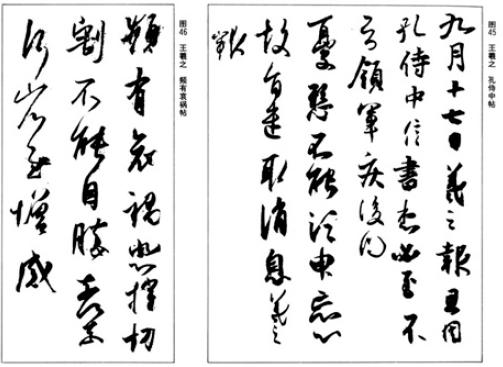 图45 王羲之 孔侍中帖
九月十七日羲之報且因
孔侍中信書想必至不
知領軍疾後問
憂懸不能須臾忘心
故旨遣取消息羲之
報
图46 王羲之 频有哀祸帖
頻有哀禍悲摧切
割不能自勝奈何奈
何省慰增感